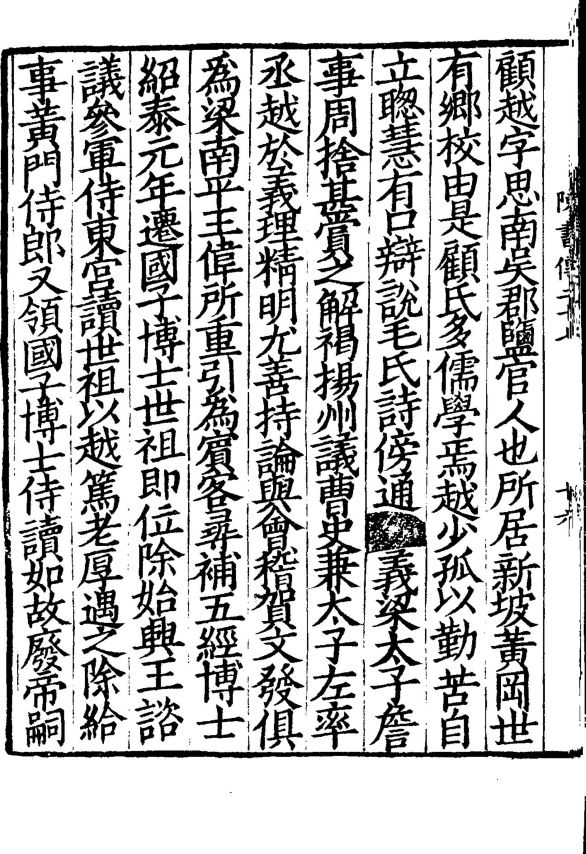 顧越字思南吳郡鹽官人也所居新坡黃岡世
有鄉校由是顧氏多儒學焉越少孤以勤苦自
立聦慧有口辯說毛氏詩傍通義梁太子詹
事周捨甚賞之解褐揚州議曹史兼太子左率
丞越於義理精明尤善持論與會稽賀文發俱
為梁南平王偉所重引為賓客尋補五經博士
紹泰元年遷國子博士世祖即位除始興王諮
議參軍侍東宮讀世祖以越篤老厚遇之除給
事黃門侍郎又領國子博士侍讀如故廢帝嗣